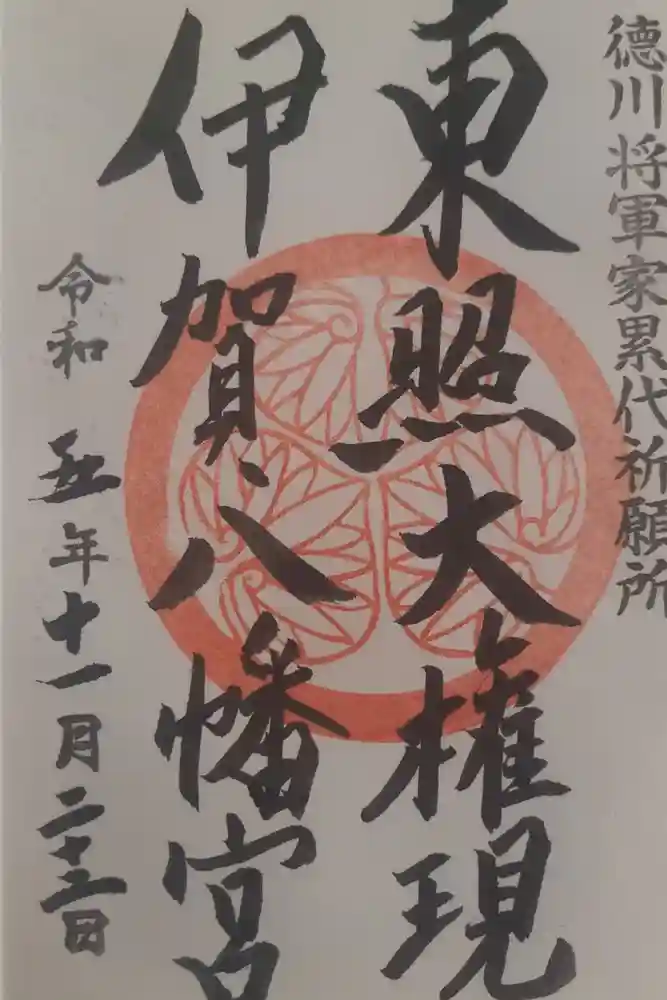 徳川将軍家累代祈願所
東照大権現
伊賀八幡宮
令和五年十一月二十五日